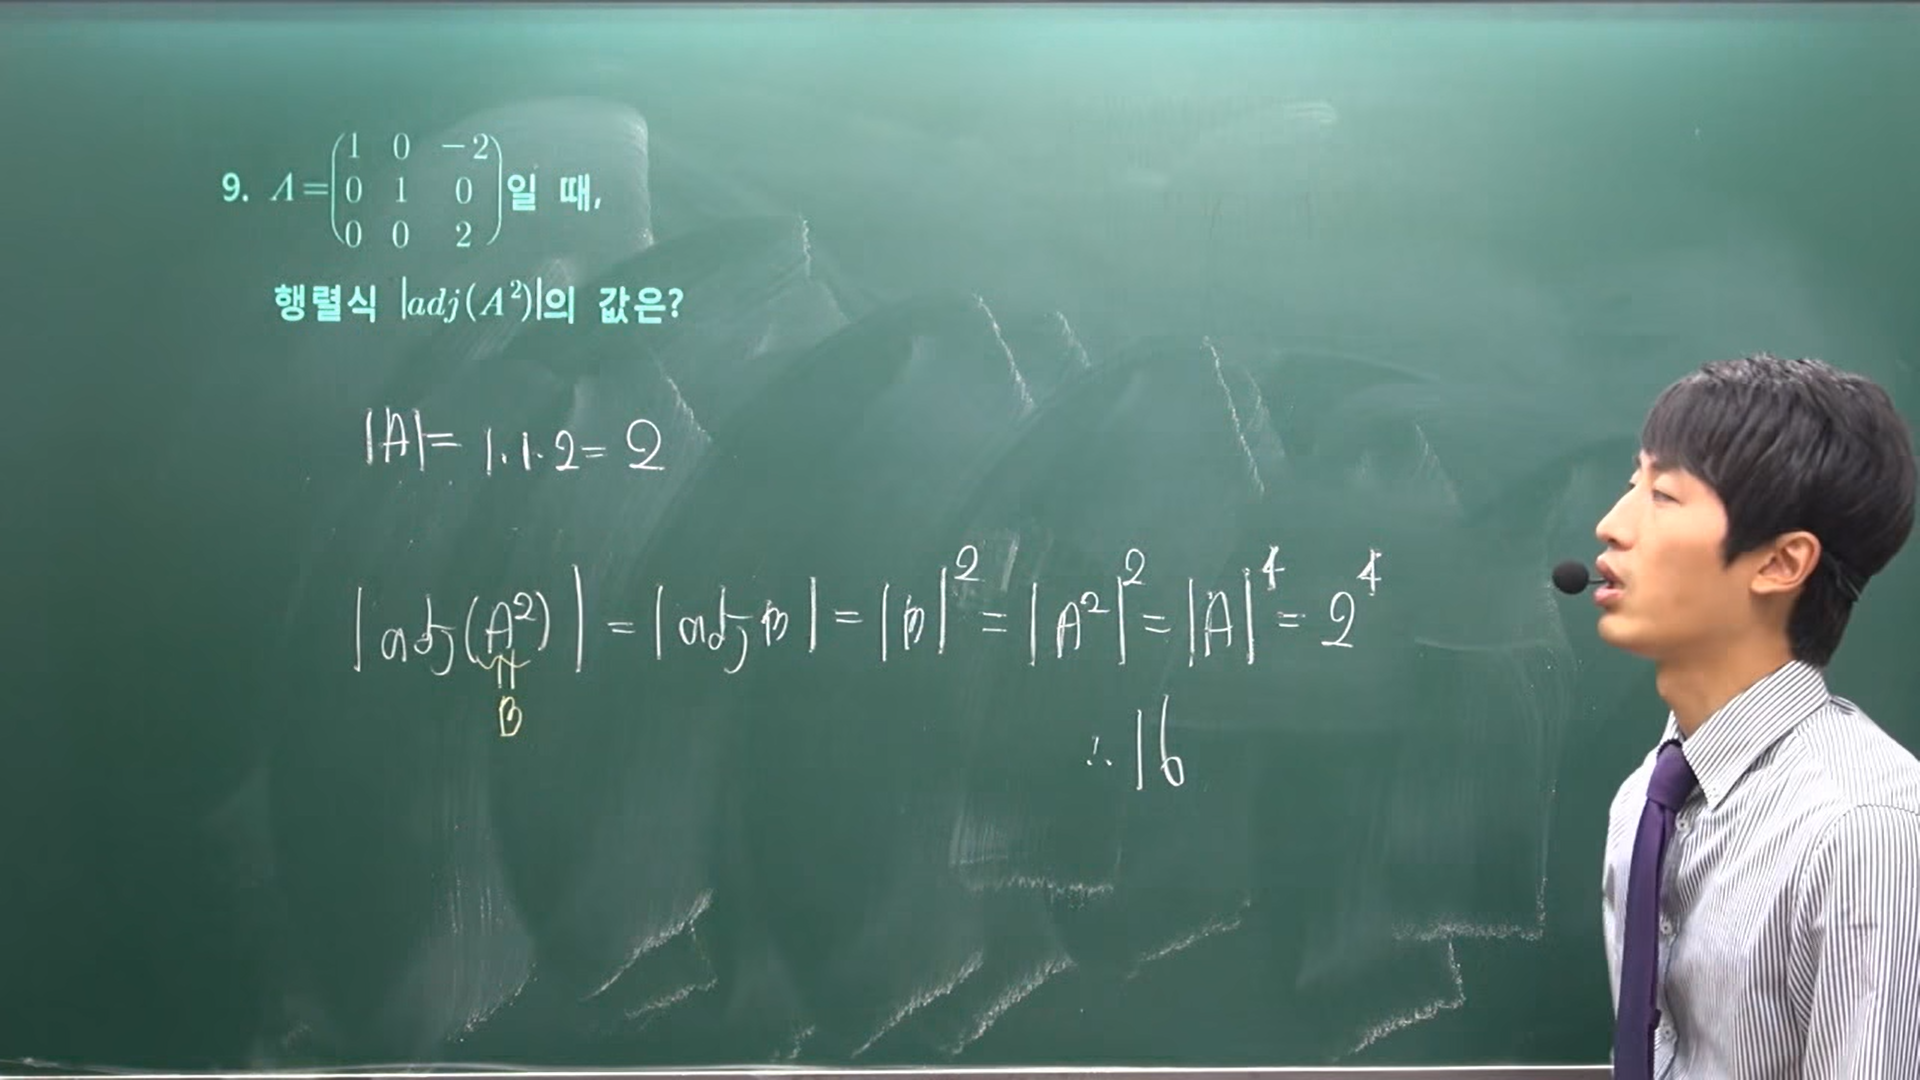 9. A = (1 0 -2
0 1 0
0 0 2) 일 때,
행렬식 |adj(A²)|의 값은?
|A| = 1·1·2 = 2
|adj(A²)| = |adj B| = |B|² = |A²|² = |A|⁴ = 2⁴
B
∴ 16